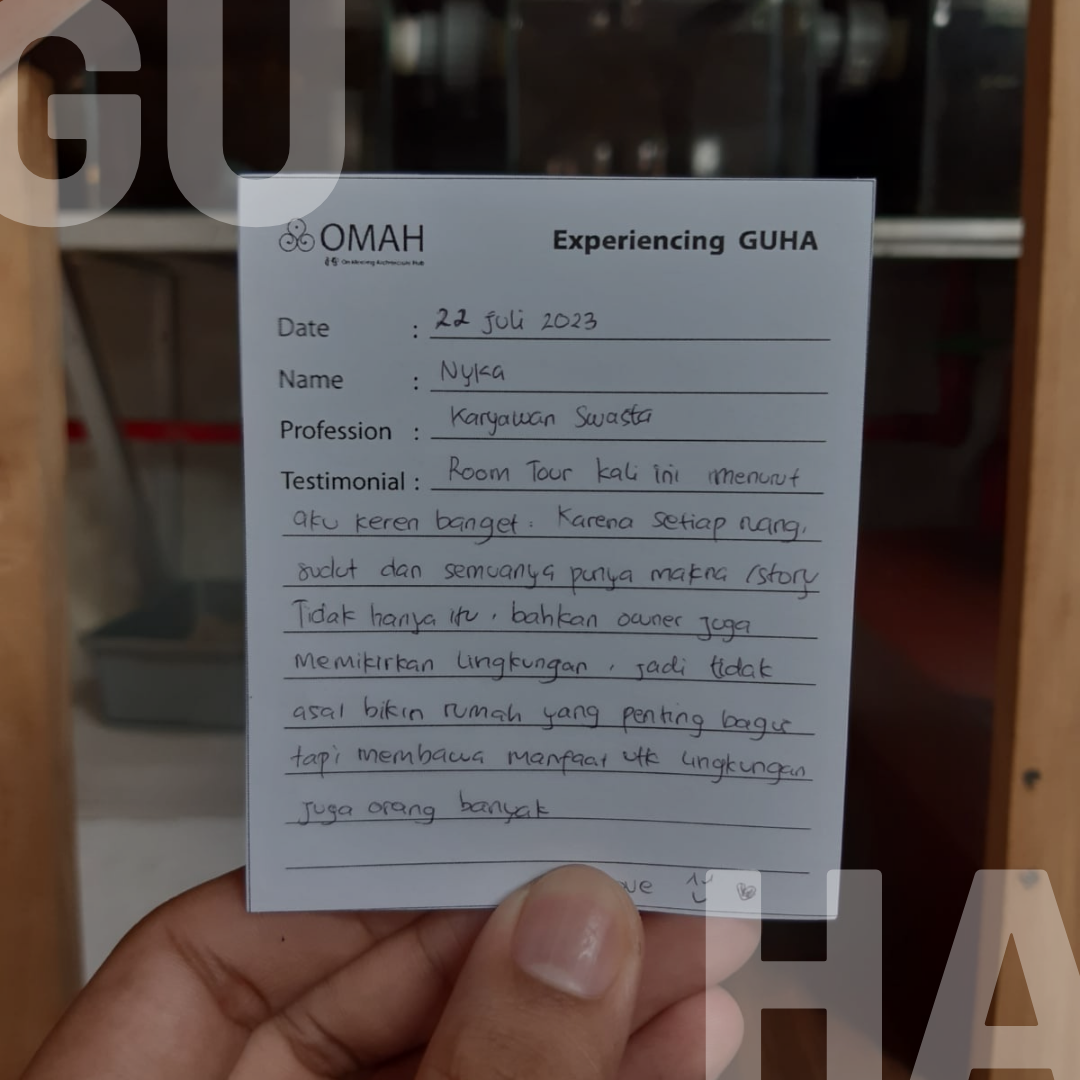 GU
OMAH
Experiencing GUHA
Date : 22 juli 2023
Name : Nyka
Profession : Karyawan Swasta
Testimonial : Room Tour kali ini menurut
aku keren banget. Karena setiap ruang,
sudut dan semuanya punya makna /story
Tidak hanya itu, bahkan owner juga
memikirkan lingkungan, jadi tidak
asal bikin rumah yang penting bagus
tapi membawa manfaat utk lingkungan
juga orang banyak
HA